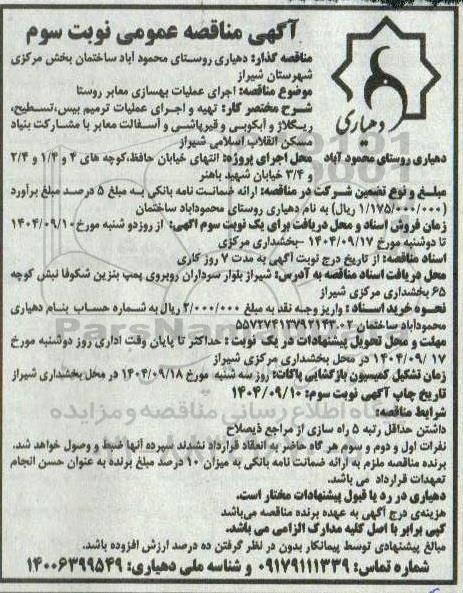 آگهی مناقصه عمومی نوبت سوم
دهیاری
مناقصه گذار: دهیاری روستای محمود آباد ساختمان بخش مرکزی
شهرستان شیراز
موضوع مناقصه: اجرای عملیات بهسازی معابر روستا
شرح مختصر کار: تهیه و اجرای عملیات ترمیم بیس،تسطیح،
ریگلاژ و آبکوبی و قیرپاشی و آسفالت معابر با مشارکت بنیاد
مسکن انقلاب اسلامی شیراز
دهیاری روستای محمود آباد محل اجرای پروژه: انتهای خیابان حافظ،کوچه های ۴ و ۱/۴ و ۲/۴
و ۳/۴ خیابان شهید باهنر
مبلغ و نوع تضمین شرکت در مناقصه: ارائه ضمانت نامه بانکی به مبلغ ۵ درصد مبلغ برآورد
(۱/۱۷۵/۰۰۰/۰۰۰ ریال) به نام دهیاری روستای محموداباد ساختمان
زمان فروش اسناد و محل دریافت برای یک نوبت سوم آگهی: از روزدو شنبه مورخ ۱۴۰۴/۰۹/۱۰
تا دوشنبه مورخ ۱۴۰۴/۰۹/۱۷ –بخشداری مرکزی
اسناد مناقصه: از تاریخ درج نوبت آگهی به مدت ۷ روز کاری
محل دریافت اسناد مناقصه به آدرس: شیراز بلوار سرداران روبروی پمپ بنزین شکوفا نبش کوچه
۶۵ بخشداری مرکزی شیراز
نحوه خرید اسناد : واریز وجه نقد به مبلغ ۲/۰۰۰/۰۰۰ ریال به شماره حساب بنام دهیاری
محمودآباد ساختمان
مهلت و محل تحویل پیشنهادات در یک نوبت : حداکثر تا پایان وقت اداری روز دوشنبه مورخ
۱۴۰۴/۰۹/۱۷ در محل بخشداری مرکزی شیراز
زمان تشکیل کمیسیون بازگشایی پاکات: روز سه شنبه مورخ ۱۴۰۴/۰۹/۱۸ در محل بخشداری شیراز
تاریخ چاپ آگهی نوبت سوم: ۱۴۰۴/۰۹/۱۰
شرایط مناقصه:
داشتن حداقل رتبه ۵ راه سازی از مراجع ذیصلاح
نفرات اول و دوم و سوم هر گاه حاضر به انعقاد قرارداد نشدند سپرده آنها ضبط و وصول خواهد شد.
برنده مناقصه ملزم به ارائه ضمانت نامه بانکی به میزان ۱۰ درصد مبلغ برنده به عنوان حسن انجام
تعهدات قرارداد می باشد.
دهیاری در رد یا قبول پیشنهادات مختار است.
هزینه‌ی درج آگهی به عهده برنده مناقصه می‌باشد
کپی برابر با اصل کلیه مدارک الزامی می باشد.
مبالغ پیشنهادی توسط پیمانکار بدون در نظر گرفتن ده درصد ارزش افزوده باشد.
شماره تماس: ۰۹۱۷۹۱۱۱۳۳۹ و شناسه ملی دهیاری: ۱۴۰۰۶۳۹۹۵۴۹